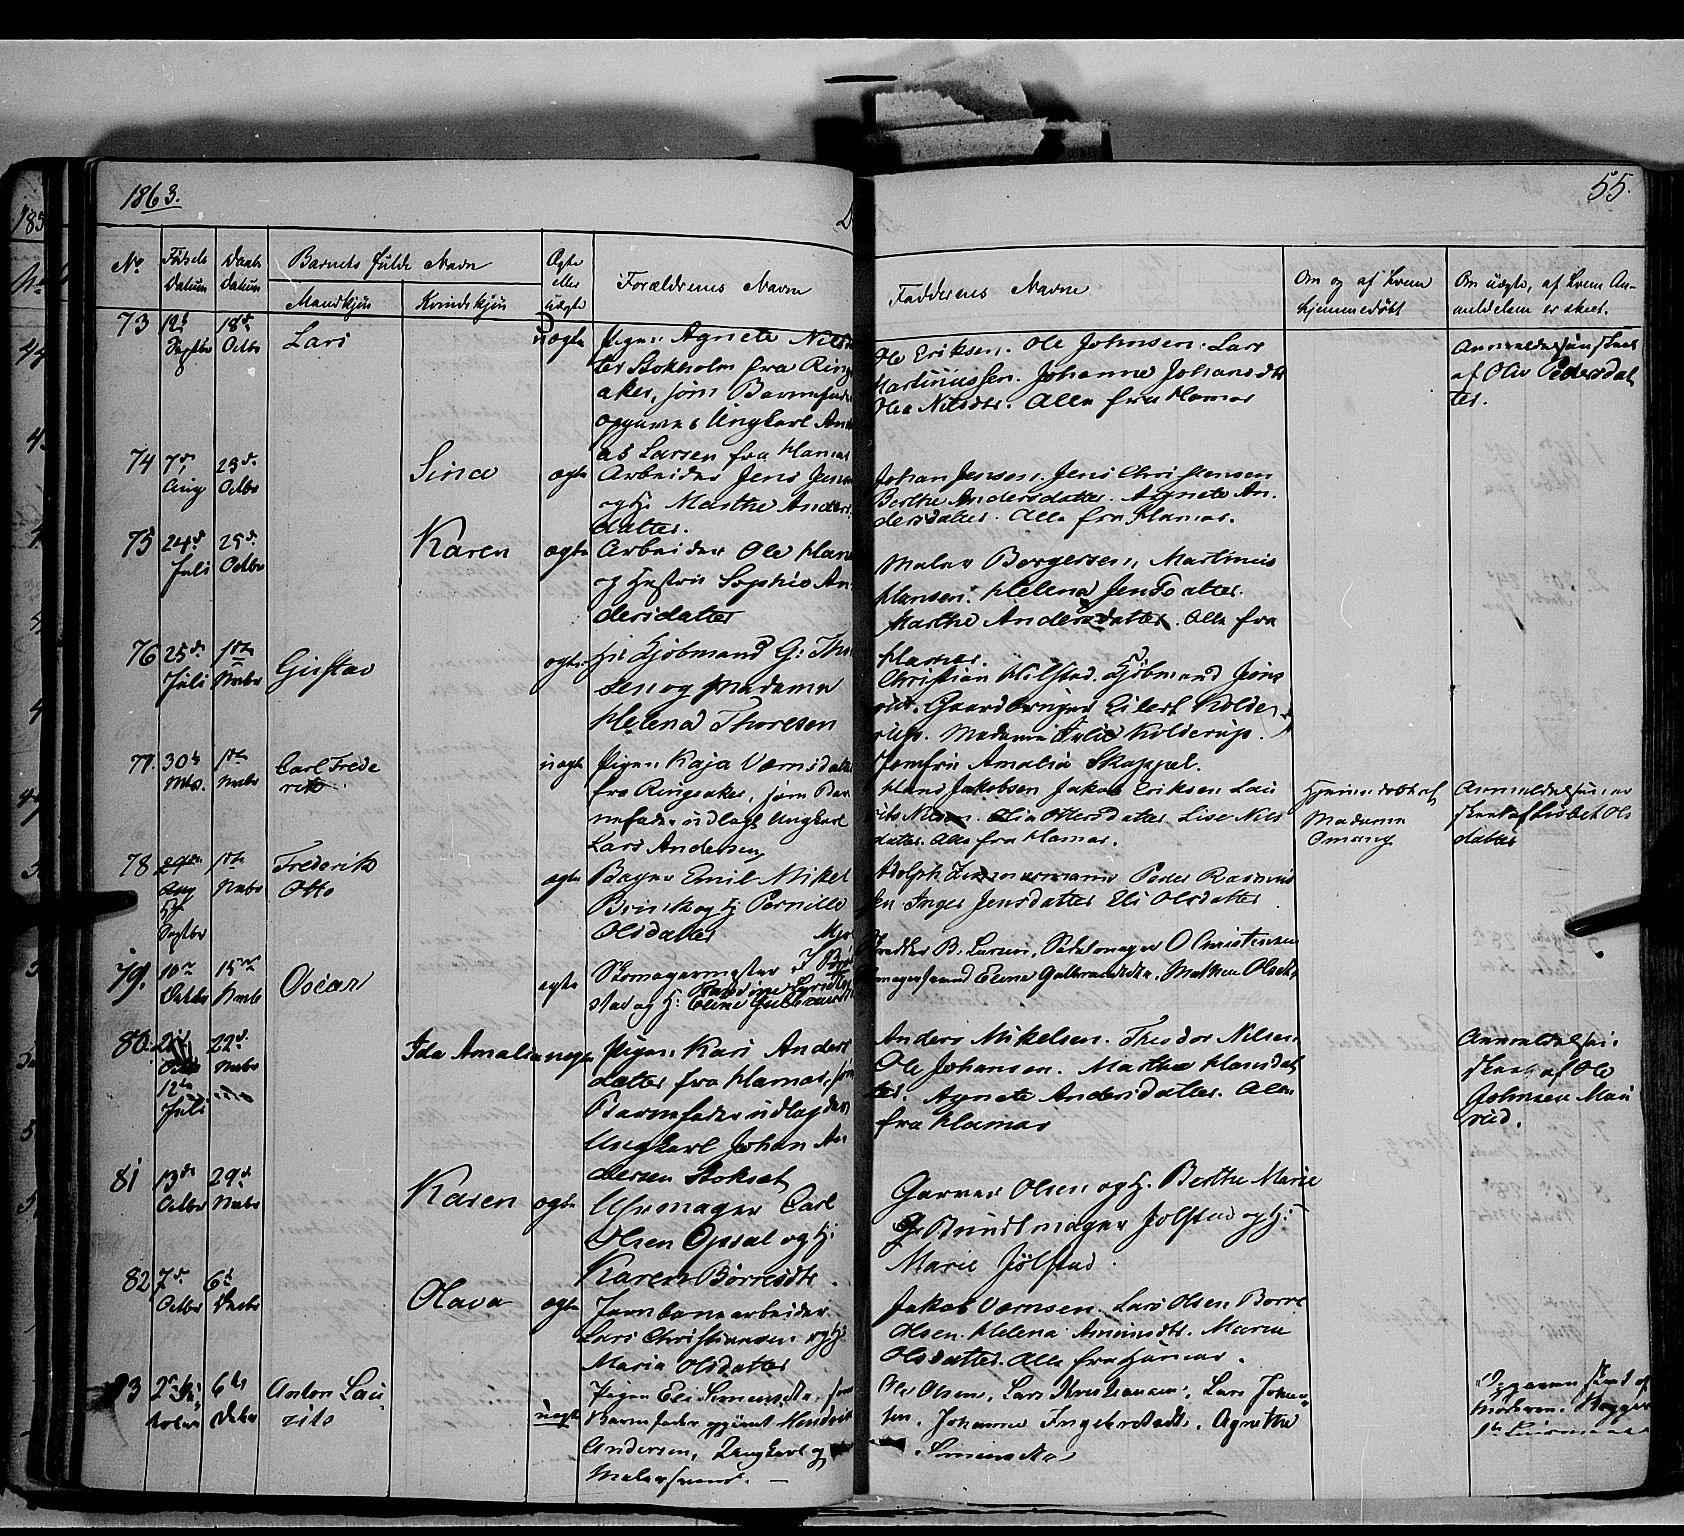 1863.
55.
No
Fødsels Datum
Daabs Datum
Barnets fulde Navn
Mandkjøn
Kvindekjøn
Ægte eller uægte
Forældrenes Navne
Faddernes Navne
Om og af hvem hjemmedøbt
Om uægte, af hvem Anmeldelsen er skeet.
73
18d Octbr
Lars
uægte
Pigen Agnete Nilsda
ter Stokholm fra Ring
aker, som Barnefader
opgaves Ungkarl And
as Larsen fra Hamar
Ole Eriksen. Ole Johnsen. Lars
Martinussen. Johanne Johansdtr
Olea Nilsdtr. Alle fra Hamar
Anmeldelsen skeet
af Oliv Pedersdat
ter.
74
7de Aug
23d Octbr
Sina
ægte
Arbeider Jens Jens
og H. Marthe Anders
datter.
Johan Jensen. Jens Christensen
Berthe Andersdatter. Agnete An
dersdatter. Alle fra Hamar.
75
24d Juli
25d Octbr
Karen
ægte
Arbeider Ole Hans
og Hustru Sophie An
dersdatter
Maler Borgersen, Martinus
Hansen. Helena Jensdatter.
Marthe Andersdatter. Alle fra
Hamar.
76
25d Juli
1ste Nvbr
Gustav
ægte
Hr Kjøbmand G. Tho
sen og Madame
Helena Thoresen
Christian Hilstad. Kjøbmand Jøns
rud. Gaardbruger Eilert Kolde
rup. Madame Julie Kolderup.
Jomfru Amalia Skappel.
77.
30te
1ste Nvbr
Carl Frede
rik
uægte
Pigen KajaVærnsdatter
fra Ringsaker, som Bar
nefader udlagt Ungkarl
Lars Andersen
Hans Jakobsen Jakob Eriksen Lau
rits Nilsen. Olia Ottersdatter Lise Nils
datter. Alle fra Hamar.
Hjemmedøbt af
Madame
Omang
Anmeldelsen er
skeet af Lisbet Ols
datter
78
5te Septbr
1ste Nvbr
Frederik
Otto
ægte
Bager Emil Mikel
Brink og H. Pernille
Olsdatter
Adolph Zimmermann Peder Rasmus
sen Inger Jensdatter Eli Olsdatter.
79.
10de Octbr
15de Nvbr
Oscar
ægte
Skomagermester J
stad og H:
B. Larsen, Sadelmager O Christensen
Eline Gulbrandsdtr, Mathea Olsdtr
80.
12te Juli
22d Nvbr
Ida Amalia
uægte
Pigen Kari Anders
datter fra Hamar, som
Barnefader udlagdes
Ungkarl Johan An
dersen Stokset
Anders Mikelsen. Theodor Nilsen.
Ole Johansen. Marthe Hansdat
ter. Agnete Andersdatter. Alle
fra Hamar
Anmeldelsen
skeet af Ole
Johnsen Mau
rud.
81
13de Octbr
29d Nvbr
Karen
ægte
Uhrmager Carl
Olsen Opsal og H:
Karen Børresdtr.
Garver Olsen og H. Berthe Marie
Bundtmager Jølstad og H:
Marie Jølstad.
82
7d Octbr
6d Decbr
Olava
ægte
Jernbanearbeider
Lars Christiansen og H:
Maria Olsdatter
Jakob Værnsen. Lars Olsen Borre
Olsen. Helena Amundsdtr. Maria
Olsdatter. Alle fra Hamar.
83
6te Decbr
Anton Lau
rits
uægte
Pigen Eli Simensdtr, som
Barnefader opgivet Hendrik
Andersen, Ungkarl og
Malersvend. —
Ole Olsen, Lars Kristiansen, Lars Johan
sen. Johanne Ingebretsdtr, Agnethe
Simensdtr
Opgaven skeet af
Moderen.